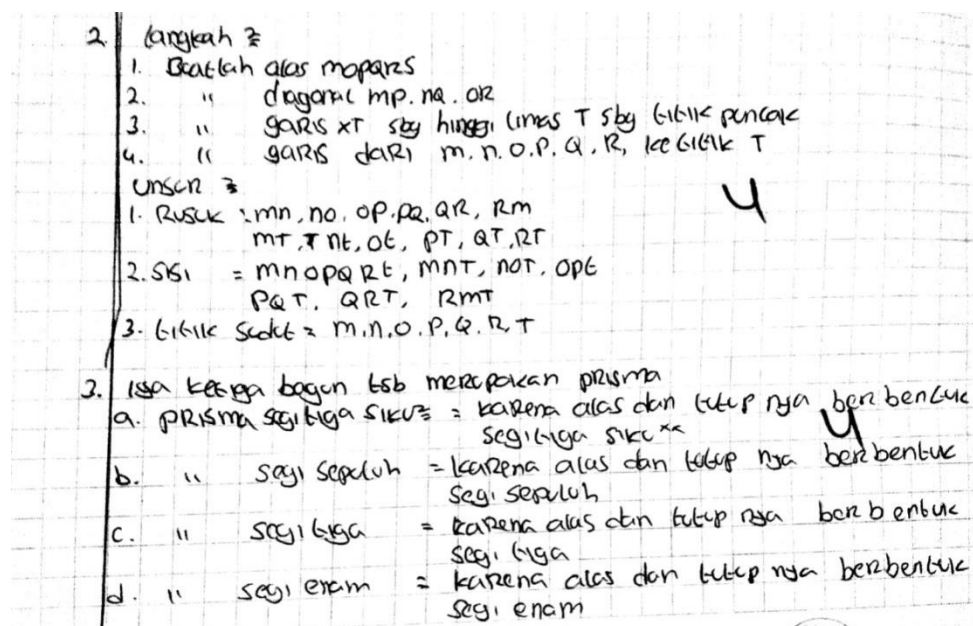 2. langkah²
1. Buatlah alas mopqrs
2. " diagonal mp. nq. OR
3. " garis xT sbg tinggi limas T sbg titik puncak
4. " garis dari m. n. o. p. Q. R, ke titik T
unsur²
1. Rusuk : mn, no. op. pq. QR, Rm
mT, nt, ot, PT, QT, RT
4
2. sisi = mnopQRt, mnT, noT, opt
PQT, QRT, RmT
3. titik sudut = m.n.o.P.Q.R.T
3. Iya ketiga bagun tsb merupakan prisma
a. prisma segitiga siku² = karena alas dan tutup nya berbentuk
segitiga siku "
4
b. " segi sepuluh = karena alas dan tutup nya berbentuk
segi sepuluh
c. " segi tiga = karena alas dan tutup nya berbentuk
segi tiga
d. " segi enam = karena alas dan tutup nya berbentuk
segi enam